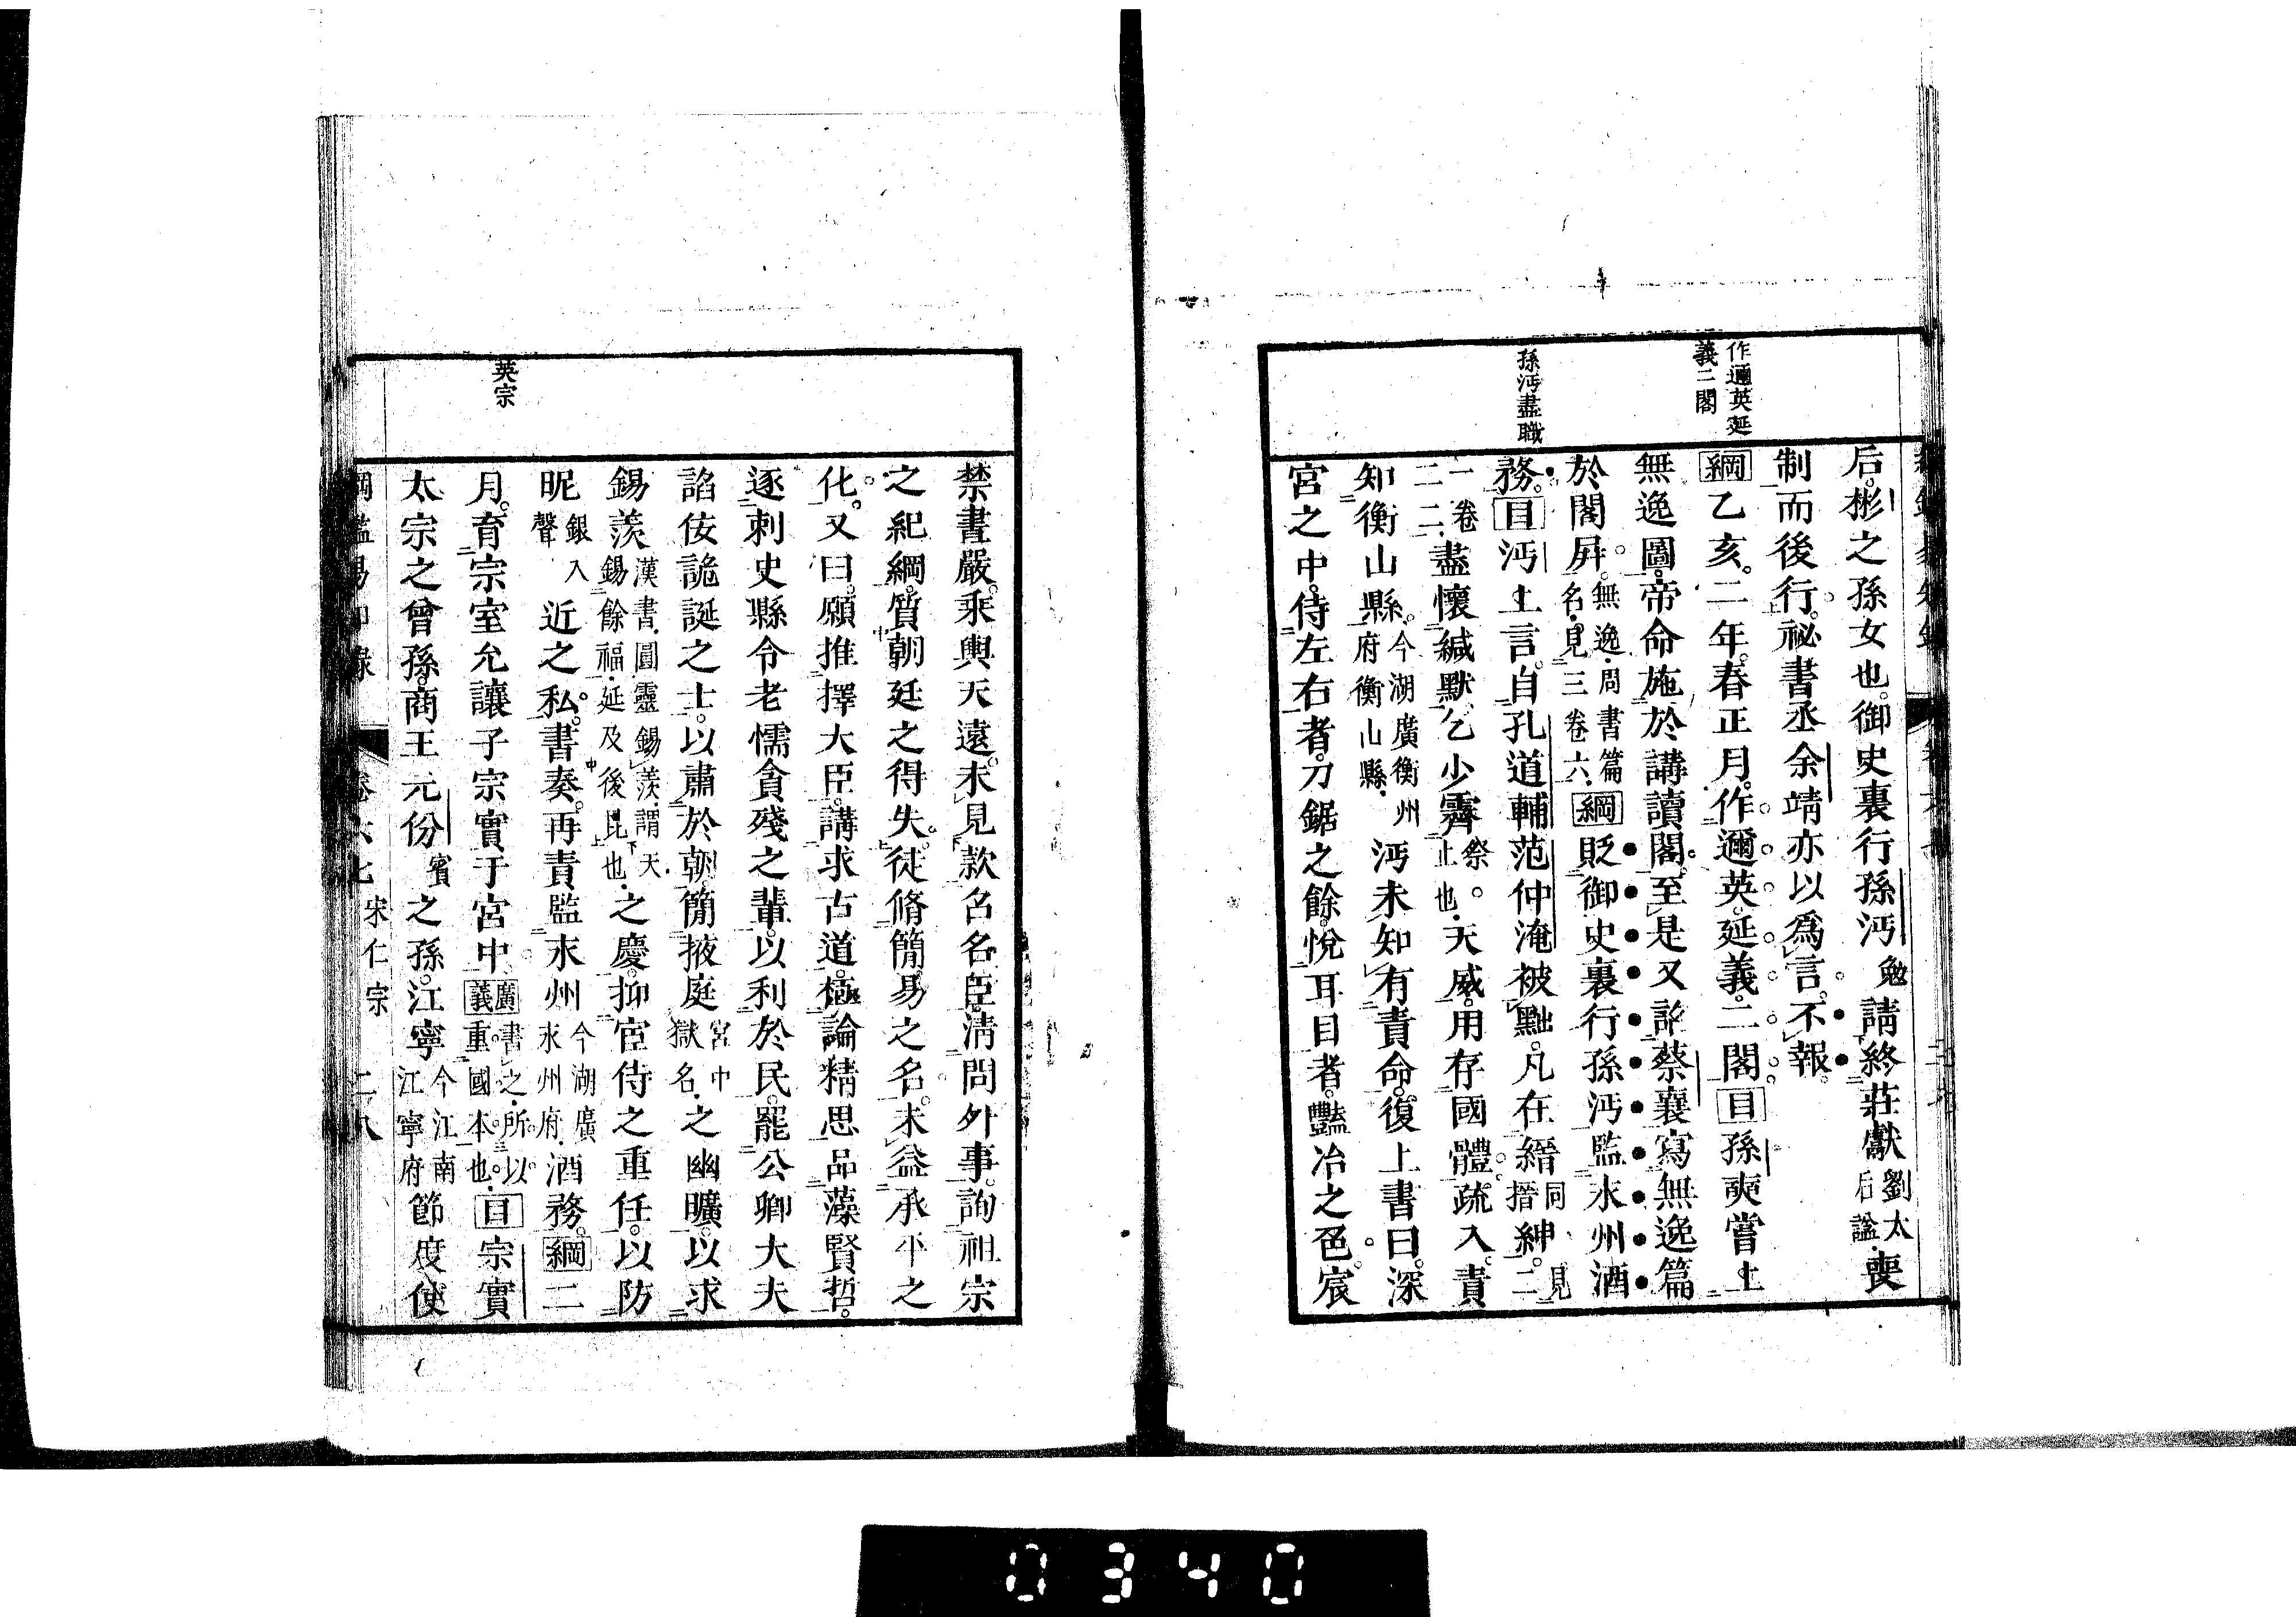 作邇英延
義二閣
孫沔盡職
后彬之孫女也。御史裏行孫沔勉請終莊獻劉太后諡喪
制而後行。祕書丞余靖亦以爲言。不報。
綱乙亥。二年。春正月。作邇英。延義。二閣。目孫奭嘗上
無逸圖。帝命施於講讀閣。至是又詔蔡襄寫無逸篇
於閣屏。無逸周書篇名見三卷六綱貶御史裏行孫沔監永州酒
務。目沔上言。自孔道輔范仲淹被黜。凡在縉同搢紳。見二
一卷二二盡懷緘默。乞少霽祭。止也天威。用存國體。疏入。責
知衡山縣。今湖廣衡州府衡山縣沔未知有責命。復上書曰。深
宮之中。侍左右者。刀鋸之餘。悅耳目者。豔冶之色。宸
英宗
禁晝嚴。乘輿天遠。未見款召名臣。淸問外事。詢祖宗
之紀綱。質朝廷之得失。徒脩簡易之名。未益承平之
化。又曰。願推擇大臣。講求古道。極論精思。品藻賢哲。
逐刺史縣令老懦貪殘之輩。以利於民。罷公卿大夫
諂佞詭誕之士。以肅於朝。簡掖庭宮中獄名之幽曠。以求
錫羨漢書圓靈錫羨謂天錫餘福延及後昆也之慶。抑宦侍之重任。以防
昵銀入聲近之私。書奏。再責監永州今湖廣永州府酒務。綱二
月。育宗室允讓子宗實于宮中。廣義書之所以重國本也目宗實
太宗之曾孫。商王元份賓之孫。江寧今江南江寧府節度使
綱鑑易知錄 卷六七 宋仁宗 二八